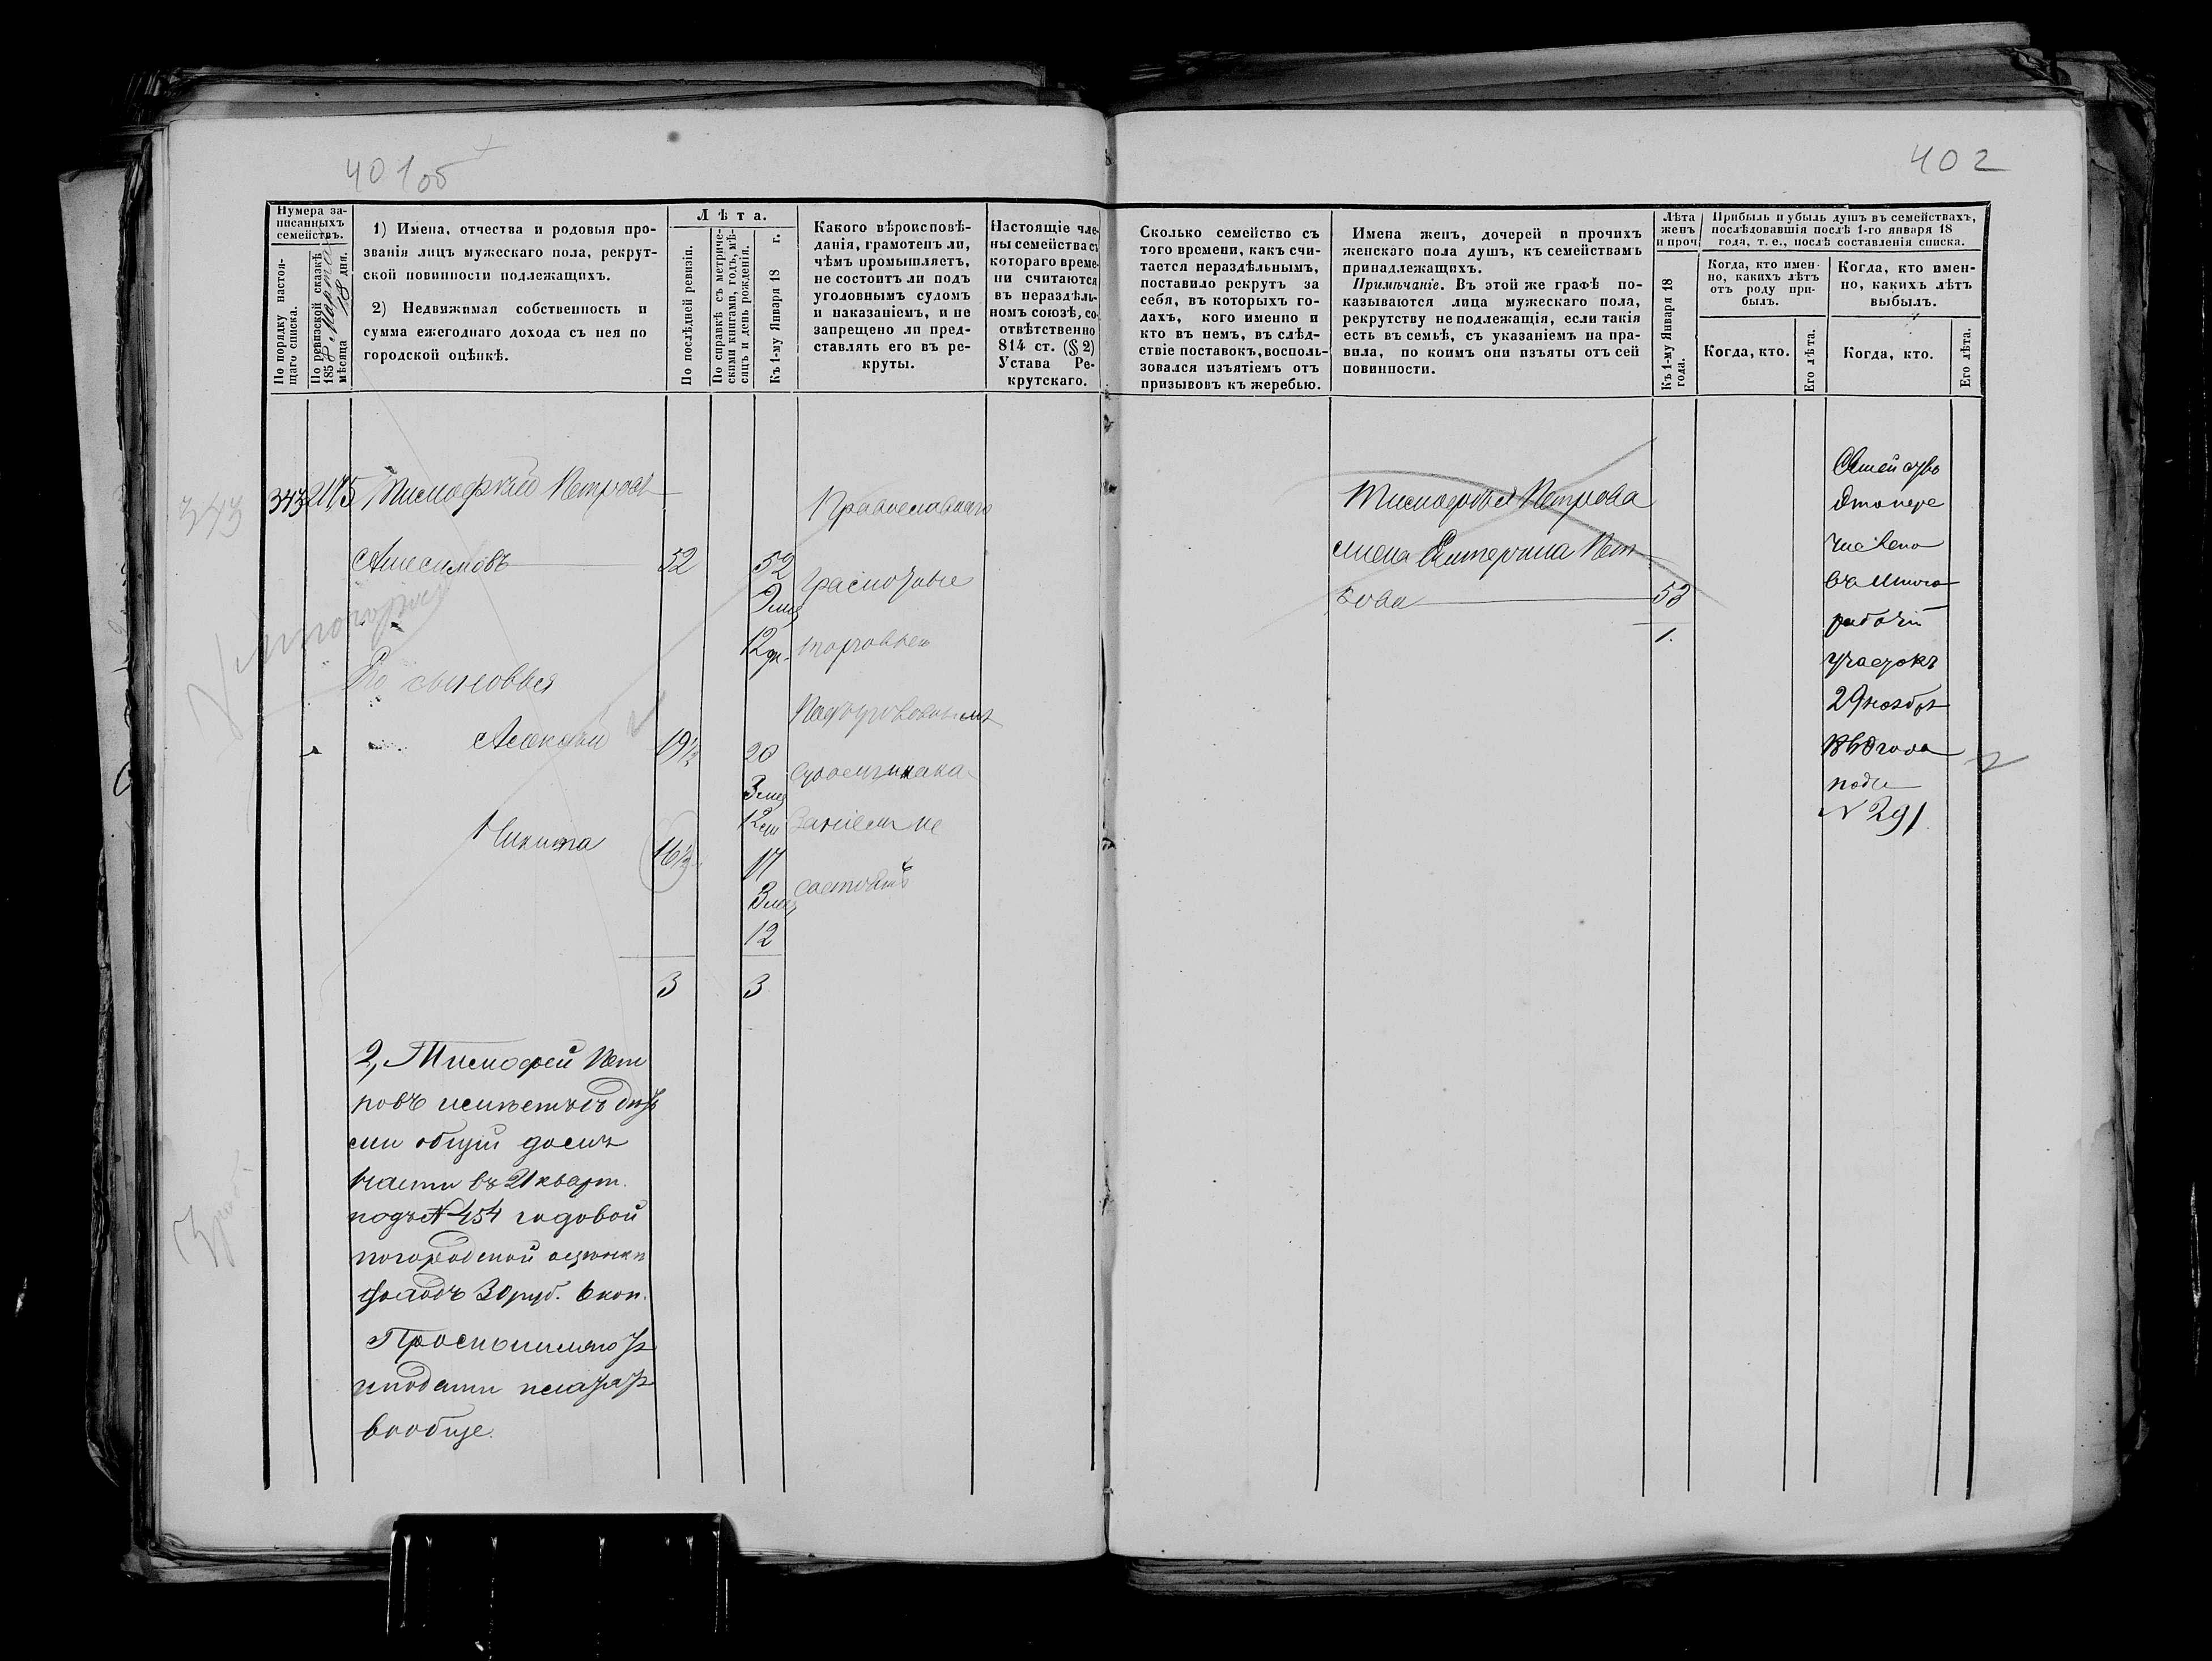 401об
402
Нумера записанныхъ семействъ.
По порядку настоящаго списка.
По ревизской сказкѣ 1858 Марта мѣсяца 18 дня.
1) Имена, отчества и родовыя прозванія лицъ мужескаго пола, рекрутской повинности подлежащихъ.
2) Недвижимая собственность и сумма ежегоднаго дохода съ нея по городской оцѣнкѣ.
Лѣта.
По послѣдней ревизіи.
По справкѣ съ метрическими книгами, годъ, мѣсяцъ и день рожденія.
Къ 1-му Января 18 г.
Какого вѣроисповѣданія, грамотенъ ли, чѣмъ промышляетъ, не состоитъ ли подъ уголовнымъ судомъ и наказаніемъ, и не запрещено ли представлять его въ рекруты.
Настоящіе члены семейства съ котораго времени считаются въ нераздѣльномъ союзѣ, соотвѣтственно 814 ст. (§ 2) Устава Рекрутскаго.
Сколько семейство съ того времени, какъ считается нераздѣльнымъ, поставило рекрутъ за себя, въ которыхъ годахъ, кого именно и кто въ немъ, въ слѣдствіе поставокъ, воспользовался изъятіемъ отъ призывовъ къ жеребью.
Имена женъ, дочерей и прочихъ женскаго пола душъ, къ семействамъ принадлежащихъ.
Примѣчаніе. Въ этой же графѣ показываются лица мужескаго пола, рекрутству не подлежащія, если такія есть въ семьѣ, съ указаніемъ на правила, по коимъ они изъяты отъ сей повинности.
Лѣта женъ и проч
Къ 1-му Января 18 года.
Прибыль и убыль душъ въ семействахъ, послѣдовавшія послѣ 1-го января 18 года, т. е., послѣ составленія списка.
Когда, кто именно, какихъ лѣтъ отъ роду прибылъ.
Когда, кто.
Его лѣта.
Когда, кто именно, какихъ лѣтъ выбылъ.
Когда, кто.
Его лѣта.
343
343 2175 Тимофей Петровъ
Анесимовъ 52 52
9 мѣс
12 дн.
Его сыновья
Алексѣй 19½ 20
3 мѣс
12 дн
Никита 16½ 17
3 мѣс
12
3 3
Православнаго
торговлею
состоятъ
2, Тимофей Пет
ровъ имѣетъ съ
общій домъ
части въ 21 кварт.
подъ № 454 годовой
по городской оцѣнки
доходъ 30 руб. 6 коп.
вообще.
Тимофея Петрова
жена Екатерина Пет
рова 53
1.
Семейство
это пере
числено
въ
рабочій
участокъ
29 ноября
года
подъ
№ 291